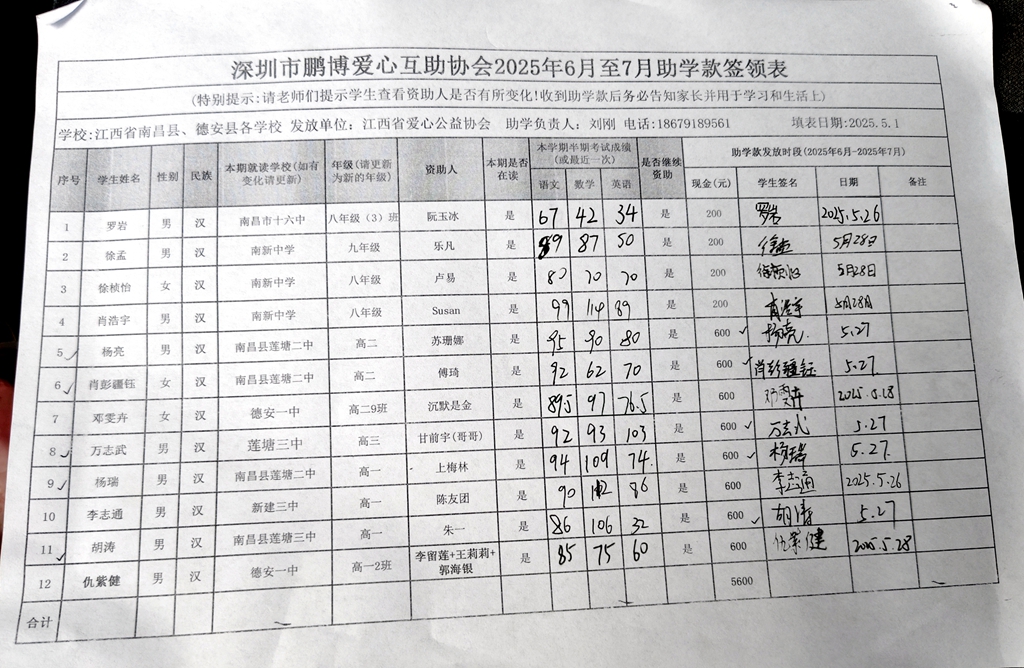 深圳市鹏博爱心互助协会2025年6月至7月助学款签领表
(特别提示:请老师们提示学生查看资助人是否有所变化!收到助学款后务必告知家长并用于学习和生活上)
学校:江西省南昌县、德安县各学校 发放单位：江西省爱心公益协会 助学负责人：刘刚 电话:18679189561 填表日期:2025.5.1
序号 学生姓名 性别 民族 本期就读学校(如有变化请更新) 年级(请更新为新的年级) 资助人 本期是否在读 本学期半期考试成绩(或最近一次) 是否继续资助 助学款发放时段(2025年6月-2025年7月)
语文 数学 英语 现金(元) 学生签名 日期 备注
1 罗岩 男 汉 南昌市十六中 八年级（3）班 阮玉冰 是 67 42 34 是 200 罗岩 2025.5.26
2 徐孟 男 汉 南新中学 九年级 乐凡 是 89 87 50 是 200 徐孟 5月28日
3 徐桢怡 女 汉 南新中学 八年级 卢易 是 80 70 70 是 200 徐桢怡 5月28日
4 肖浩宇 男 汉 南新中学 八年级 Susan 是 99 114 89 是 200 肖浩宇 5月28日
5 杨亮 男 汉 南昌县莲塘二中 高二 苏珊娜 是 95 90 80 是 600 杨亮 5.27
6 肖彭疆钰 女 汉 南昌县莲塘二中 高二 傅琦 是 92 62 70 是 600 肖彭疆钰 5.27
7 邓雯卉 女 汉 德安一中 高二9班 沉默是金 是 89.5 97 76.5 是 600 邓雯卉 2025.5.28
8 万志武 男 汉 莲塘三中 高三 甘前宇(哥哥) 是 92 93 103 是 600 万志武 5.27
9 杨瑞 男 汉 南昌县莲塘二中 高一 上梅林 是 94 109 74. 是 600 杨瑞 5.27
10 李志通 男 汉 新建三中 高一 陈友团 是 90 86 是 600 李志通 2025.5.26
11 胡涛 男 汉 南昌县莲塘三中 高一 朱一 是 86 106 32 是 600 胡涛 5.27
12 仇紫健 男 汉 德安一中 高一2班 李留莲+王莉莉+郭海银 是 85 75 60 是 600 仇紫健 2025.5.28
合计 5600